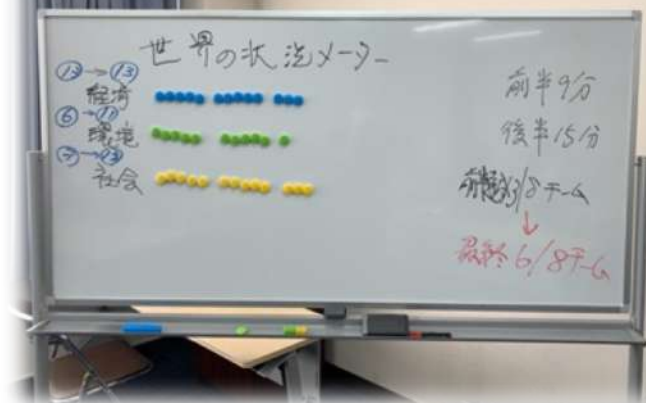 世界の状況メーター
⑫→⑬
経済
⑥→⑪
環境
⑦→⑬
社会
前半9分
後半15分
3/8チーム
↓
最終6/8チーム